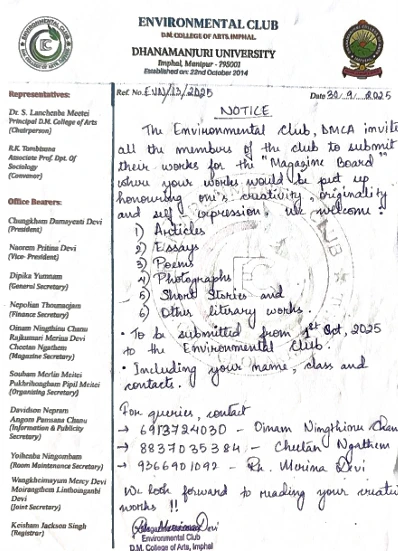 ENVIRONMENTAL CLUB
D.M. COLLEGE OF ARTS, IMPHAL
DHANAMANJURI UNIVERSITY
Imphal, Manipur - 795001
Established on: 22nd October 2014
Ref. No. EVN/13/2025
Date 30.9.2025
Representatives:
Dr. S. Lanchenba Meetei
Principal D.M. College of Arts
(Chairperson)
R.K. Tombisana
Associate Prof. Dpt. Of
Sociology
(Convenor)
Office Bearers:
Chungkham Damayenti Devi
(President)
Naorem Pritina Devi
(Vice- President)
Dipika Yumnam
(General Secretary)
Nepolian Thounaojam
(Finance Secretary)
Oinam Ningthinu Chanu
Rajkumari Merina Devi
Cheetan Ngathem
(Magazine Secretary)
Soubam Merlin Meitei
Pukhrihongbam Pipil Meitei
(Organising Secretary)
Davidson Nepram
Angom Pamsana Chanu
(Information & Publicity
Secretary)
Yoihenba Ningombam
(Room Maintenance Secretary)
Wangkheimayum Mercy Devi
Moirangthem Linthoinganbi
Devi
(Joint Secretary)
Keisham Jackson Singh
(Registrar)
NOTICE
The Environmental Club, DMCA invite
all the members of the club to submit
their works for the "Magazine Board"
where your works would be put up
honouring one's creativity, originality
and self expression. We welcome:
1) Articles
2) Essays
3) Poems
4) Photographs
5) Short Stories and
6) Other literary works.
• To be submitted from 1st Oct, 2025
to the Environmental Club.
• Including your name, class and
contacts.
For queries, contact
→ 6913724030 - Oinam Ningthinu Chan
→ 8837035384 - Cheetan Ngathem
→ 9366901092 - Rk. Merina Devi
We look forward to reading your creati
works !!
Environmental Club
D.M. College of Arts, Imphal